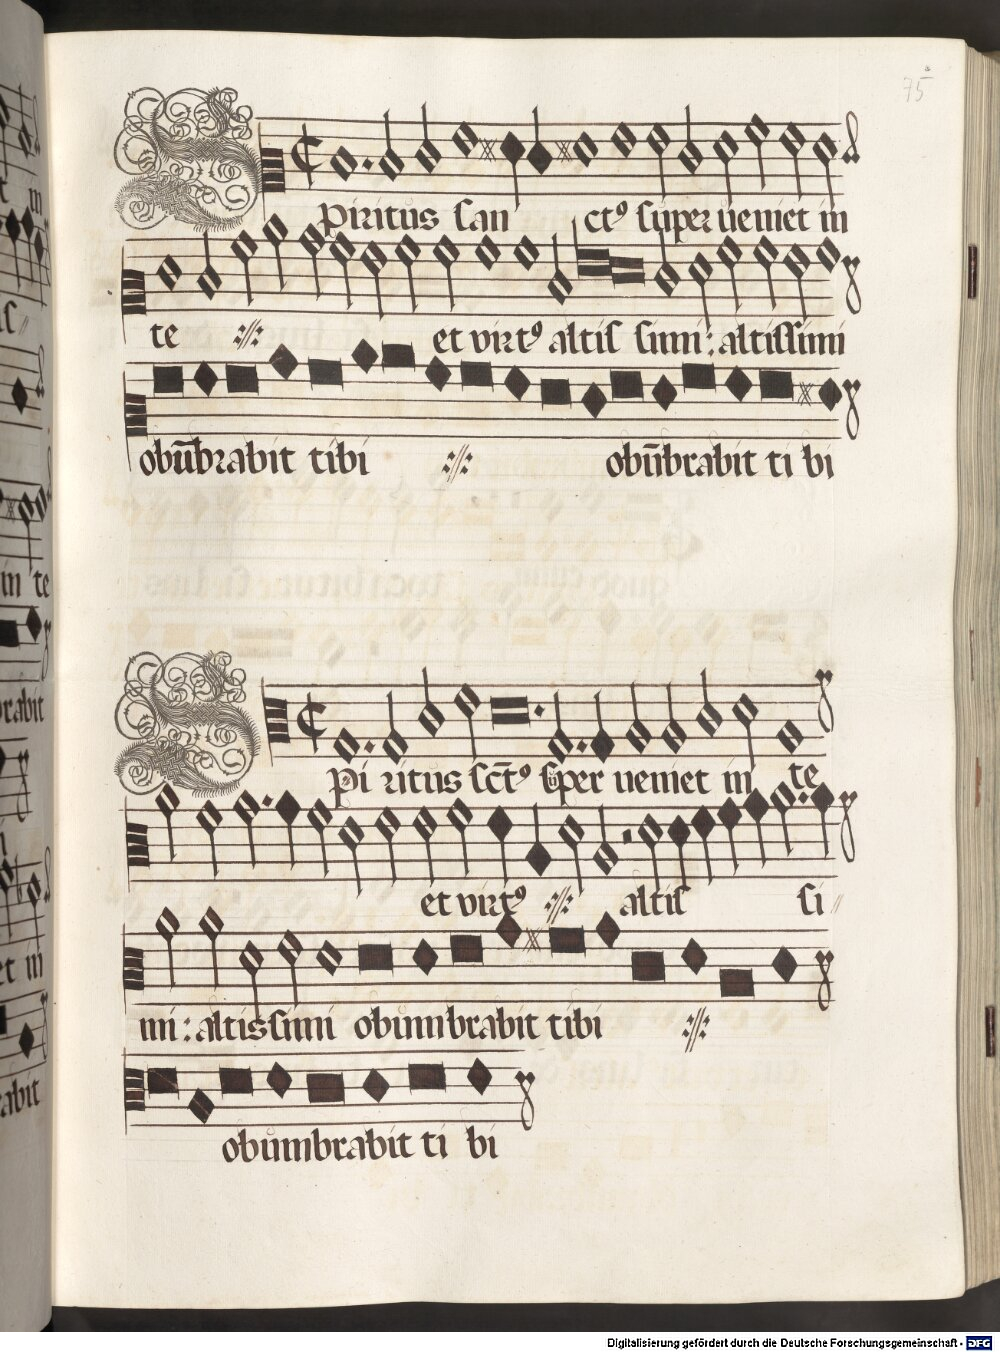 75
Spiritus san ctꝰ superueniet in
te et virtꝰ altis simi: altissimi
obūbrabit tibi obūbrabit ti bi
Spi ritus sc̄tꝰ super ueniet in te
et virtꝰ altis si
mi: altissimi obumbrabit tibi
obumbrabit ti bi
in te
Digitalisierung gefördert durch die Deutsche Forschungsgemeinschaft - DFG